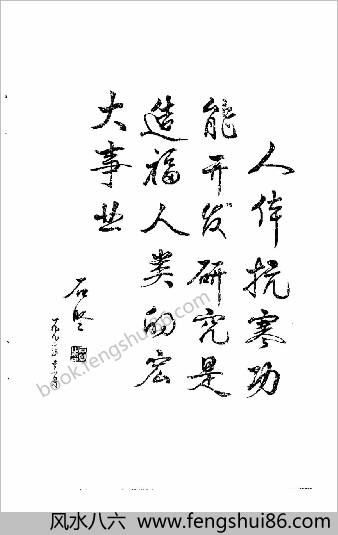 人体抗寒功
能开发研究是
造福人类的宏
大事业
book.fengshui86.com
风水八六 www.fengshui86.com